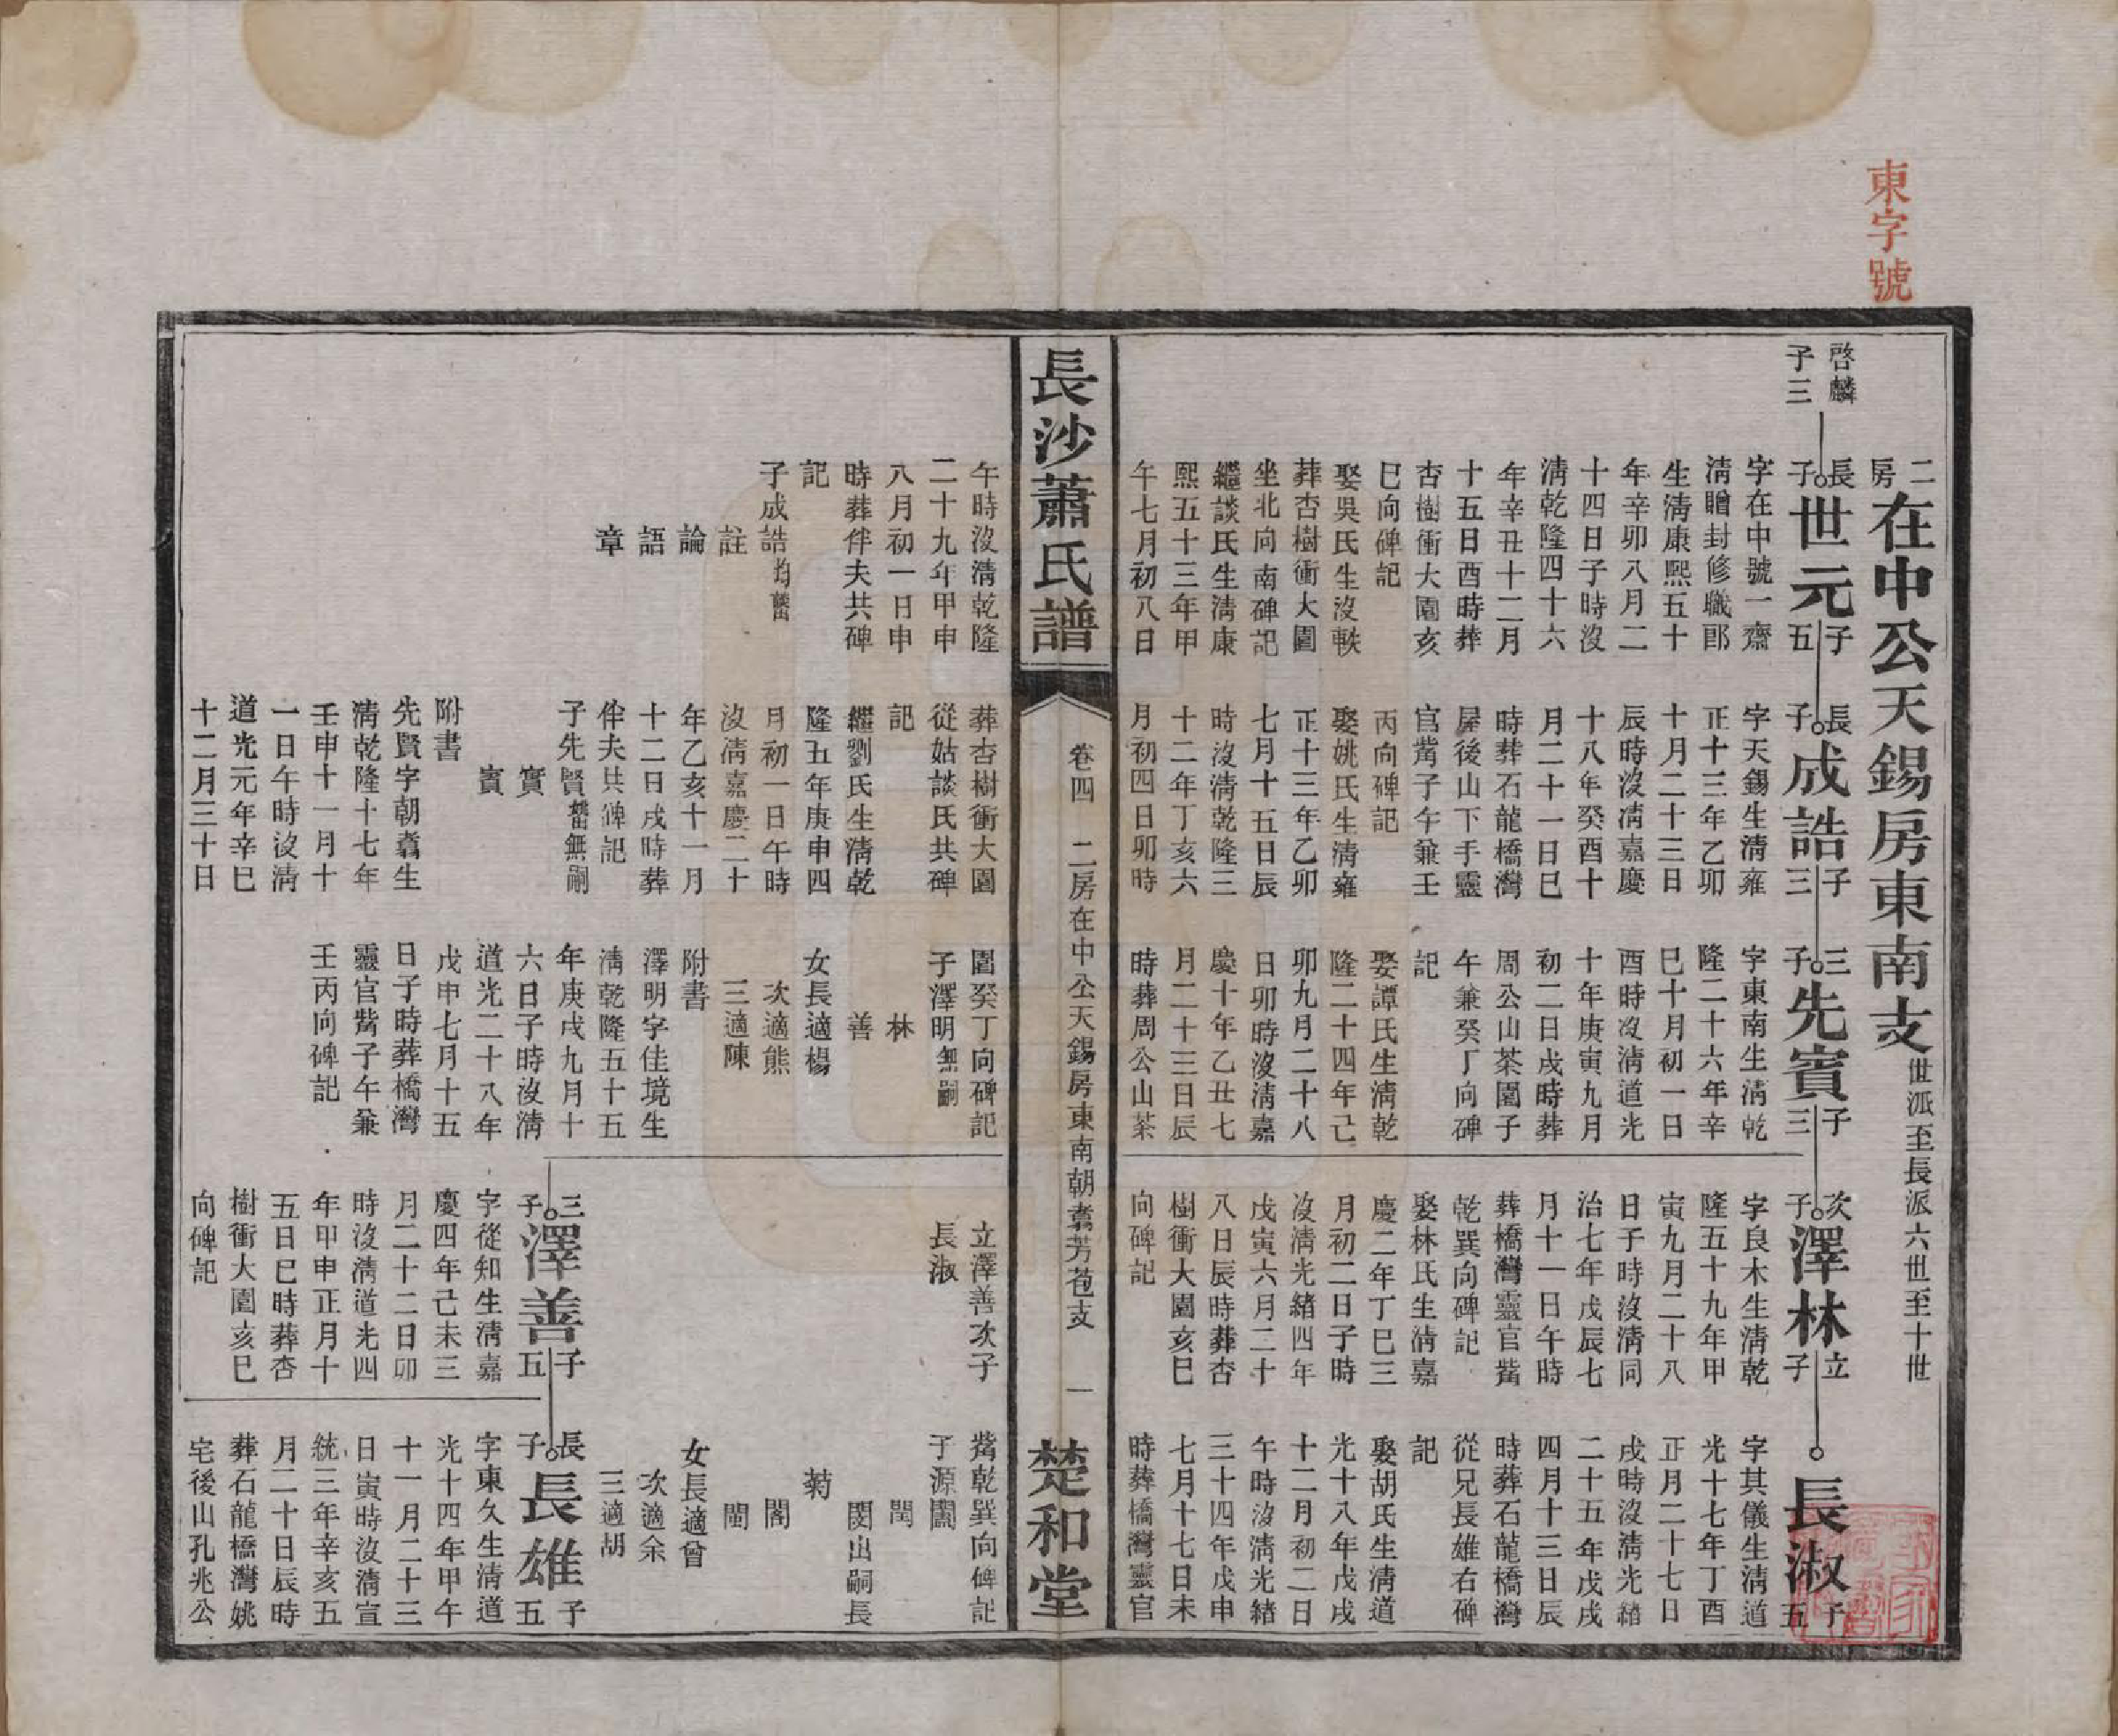 東字號
二房在中公天錫房東南支世派至長派六世至十世
啓麟子三
長子世元子五
字在中號一齋
清贈封修職郎
生清康熙五十
年辛卯八月二
十四日子時沒
清乾隆四十六
年辛丑十二月
十五日酉時葬
杏樹衝大園亥
巳向碑記
娶吳氏生沒軼
葬杏樹衝大園
坐北向南碑記
繼談氏生清康
熙五十三年甲
午七月初八日
長子成誥子三
字天錫生清雍
正十三年乙卯
十月二十三日
辰時沒清嘉慶
十八年癸酉十
月二十一日巳
時葬石龍橋灣
屋後山下手靈
官觜子午兼壬
丙向碑記
娶姚氏生清雍
正十三年乙卯
七月十五日辰
時沒清乾隆三
十二年丁亥六
月初四日卯時
三子先賓子三
字東南生清乾
隆二十六年辛
巳十月初一日
酉時沒清道光
十年庚寅九月
初二日戌時葬
周公山茶園子
午兼癸丁向碑
記
娶譚氏生清乾
隆二十四年己
卯九月二十八
日卯時沒清嘉
慶十年乙丑七
月二十三日辰
時葬周公山茶
次子澤林立子
字良木生清乾
隆五十九年甲
寅九月二十八
日子時沒清同
治七年戊辰七
月十一日午時
葬橋灣靈官觜
乾巽向碑記
娶林氏生清嘉
慶二年丁巳三
月初二日子時
沒清光緒四年
戊寅六月二十
八日辰時葬杏
樹衝大園亥巳
向碑記
長淑子五
字其儀生清道
光十七年丁酉
正月二十七日
戌時沒清光緒
二十五年戊戌
四月十三日辰
時葬石龍橋灣
從兄長雄右碑
記
娶胡氏生清道
光十八年戊戌
十二月初二日
午時沒清光緒
三十四年戊申
七月十七日未
時葬橋灣靈官
長沙蕭氏譜
卷四 二房在中公天錫房東南朝翥芳苞支 一
楚和堂
午時沒清乾隆
二十九年甲申
八月初一日申
時葬伴夫共碑
記
子成誥均蕃
註
論
語
章
葬杏樹衝大園
從姑談氏共碑
記
繼劉氏生清乾
隆五年庚申四
月初一日午時
沒清嘉慶二十
年乙亥十一月
十二日戌時葬
伴夫共碑記
子先賢無嗣
實
賓
附書
先賢字朝翥生
清乾隆十七年
壬申十一月十
一日午時沒清
道光元年辛巳
十二月三十日
園癸丁向碑記
子澤明無嗣
林
善
女長適楊
次適熊
三適陳
附書
澤明字佳境生
清乾隆五十五
年庚戌九月十
六日子時沒清
道光二十八年
戊申七月十五
日子時葬橋灣
靈官觜子午兼
壬丙向碑記
立澤善次子
長淑
三子澤善子五
字從知生清嘉
慶四年己未三
月二十二日卯
時沒清道光四
年甲申正月十
五日巳時葬杏
樹衝大園亥巳
向碑記
觜乾巽向碑記
子源閶
閏
閔出嗣長
菊
閣
閩
女長適曾
次適余
三適胡
長子長雄子五
字東久生清道
光十四年甲午
十一月二十三
日寅時沒清宣
統三年辛亥五
月二十日辰時
葬石龍橋灣姚
宅後山孔兆公